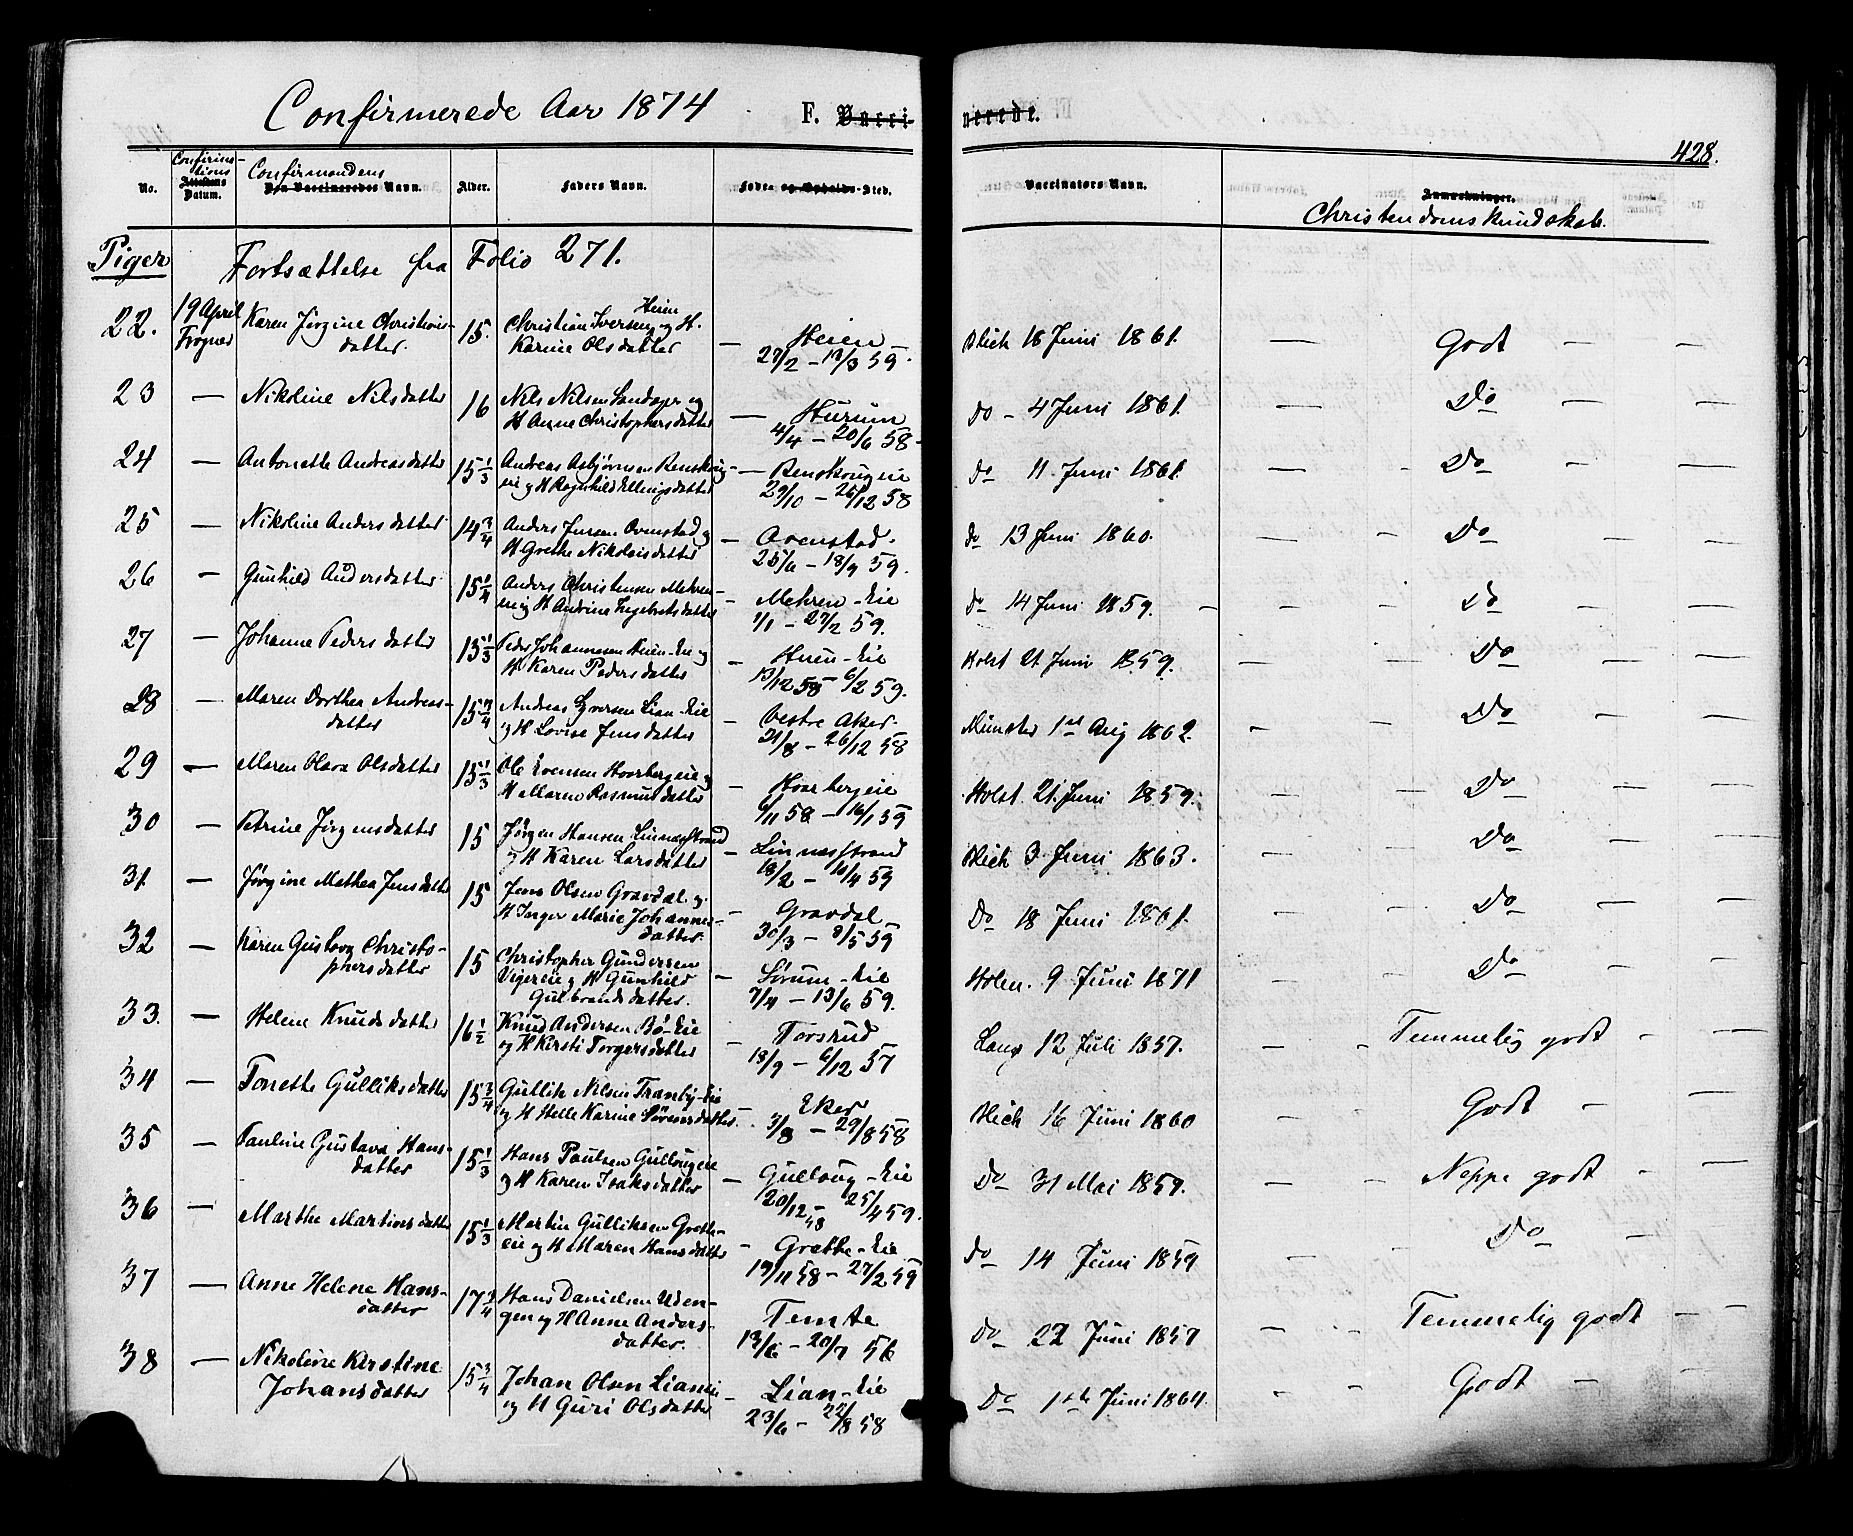 Confirmerede Aar 1874 F. Vacci- nerede.
428.
No. Confirma-
tions
Attestens
Datum. Confirmandens
Den Vaccineredes Navn. Alder. Faders Navn. Fødes og Opholds-Sted. Vaccinators Navn. Anmærkninger.
Christendomskundskab.
Piger Fortsættelse fra Folio 271.
22. 19 April
Frogner Karen Jørgine Christians-
datter. 15. Christian Iversen Heien og H.
Karine Olsdatter — Heien
27/2 – 13/3 59. Blich 18 Juni 1861. — Godt — —
23 — Nikoline Nilsdatter 16 Nils Nilsen og
H Anne Christophersdatter — Hurum
4/4 – 20/6 58 Do – 4 Juni 1861. — Do — —
24 — Antonette Andreasdatter 15 1/3 Andreas Asbjørnsen
eie og H Ragnhild Ellingsdatter —
29/10 – 26/12 58 Do 11. Juni 1861. — Do — —
25 — Nikoline Andersdatter 14 3/4 Anders Jensen Ovenstad og
H Grethe Nikolaisdatter — Ovenstad.
25/6 – 18/9 59. Do 13 Juni 1860. Do — —
26 — Gunhild Andersdatter 15 1/4 Anders Christensen Mehren-
eie og H Andrine datter — Mehren-Eie
1/1 – 27/2 59. Do 14 Juni 1859. — Do — —
27 — Johanne Pedersdatter 15 1/3 Peder Johannesen Heien-Eie og
H Karen Pedersdatter — Heien-Eie
13/12 58 – 6/2 59. Holst 21 Juni 1859. — Do — —
28 — Maren Dorthea Andreas-
datter 15 3/4 Andreas Syversen Lian-Eie
og H Lovise Jensdatter — Vestre Aker.
21/8 – 26/12 58 Münster 1st Aug 1862. — Do — —
29 — Maren Olava Olsdatter 15 1/3 Ole Evensen eie og
H Maren Rasmusdatter —
6/11 58 – 16/1 59 Holst. 21. Juni 1859. — Do — —
30 — Petrine Jørgensdatter 15 Jørgen Hansen Linnæsstrand
og H Karen Larsdatter — Linnæsstrand
18/2 – 10/4 59 Blich 3 Juni 1863. — Do — —
31. — Jørgine Mathea Jensdatter 15 Jens Olsen Gravdal og
H Inger Marie Johannes-
datter. — Gravdal
30/3 – 8/5 59 Do 18 Juni 1861. — Do — —
32 — Karen Gustava Christo-
phersdatter 15 Christopher Gundersen
og H Gunhild
Gulbrandsdatter. — Sørum-Eie
7/4 – 13/6 59. Holen. 9 Juni 1871 — Do — —
33. — Helene Knudsdatter 16 1/2 Knud Andersen Bø-Eie
og H Kirsti Torgersdatter — Torsrud
18/9 – 6/12 57 Lang 12 Juli 1857. — Temmelig godt —
34 — Tonette Gulliksdatter 15 3/4 Gullik Nilsen Tranby-Eie
og H Helle Karine Sørensdatter. — Eker
3/8 – 29/8 58 Blich 16 Juni 1860 — Godt — —
35 — Pauline Gustava Hans-
datter 15 1/3 Hans Paulsen Gullougeie
og H Karen Isaksdatter — Gulloug-Eie
20/12 58 – 25/4 59. Do 31 Mai 1859. — Neppe godt —
36 — Marthe Martinsdatter 15 1/3 Martin Gulliksen Grette-
eie og H Maren Hansdatter — Grette-Eie
19/11 58 – 27/2 59 Do 14 Juni 1859 — Do —
37 — Anne Helene Hans-
datter 17 3/4 Hans Danielsen Uden-
gen og H Anne Anders-
datter. Temte
13/6 – 20/7 56 Do 22 Juni 1857 — Temmelig godt —
38 — Nikoline Kirstine
Johansdatter 15 3/4 Johan Olsen Lianeie
og H Guri Olsdatter — Lian-Eie
23/6 – 22/8 58 Do 1ste Juni 1864. — Godt —